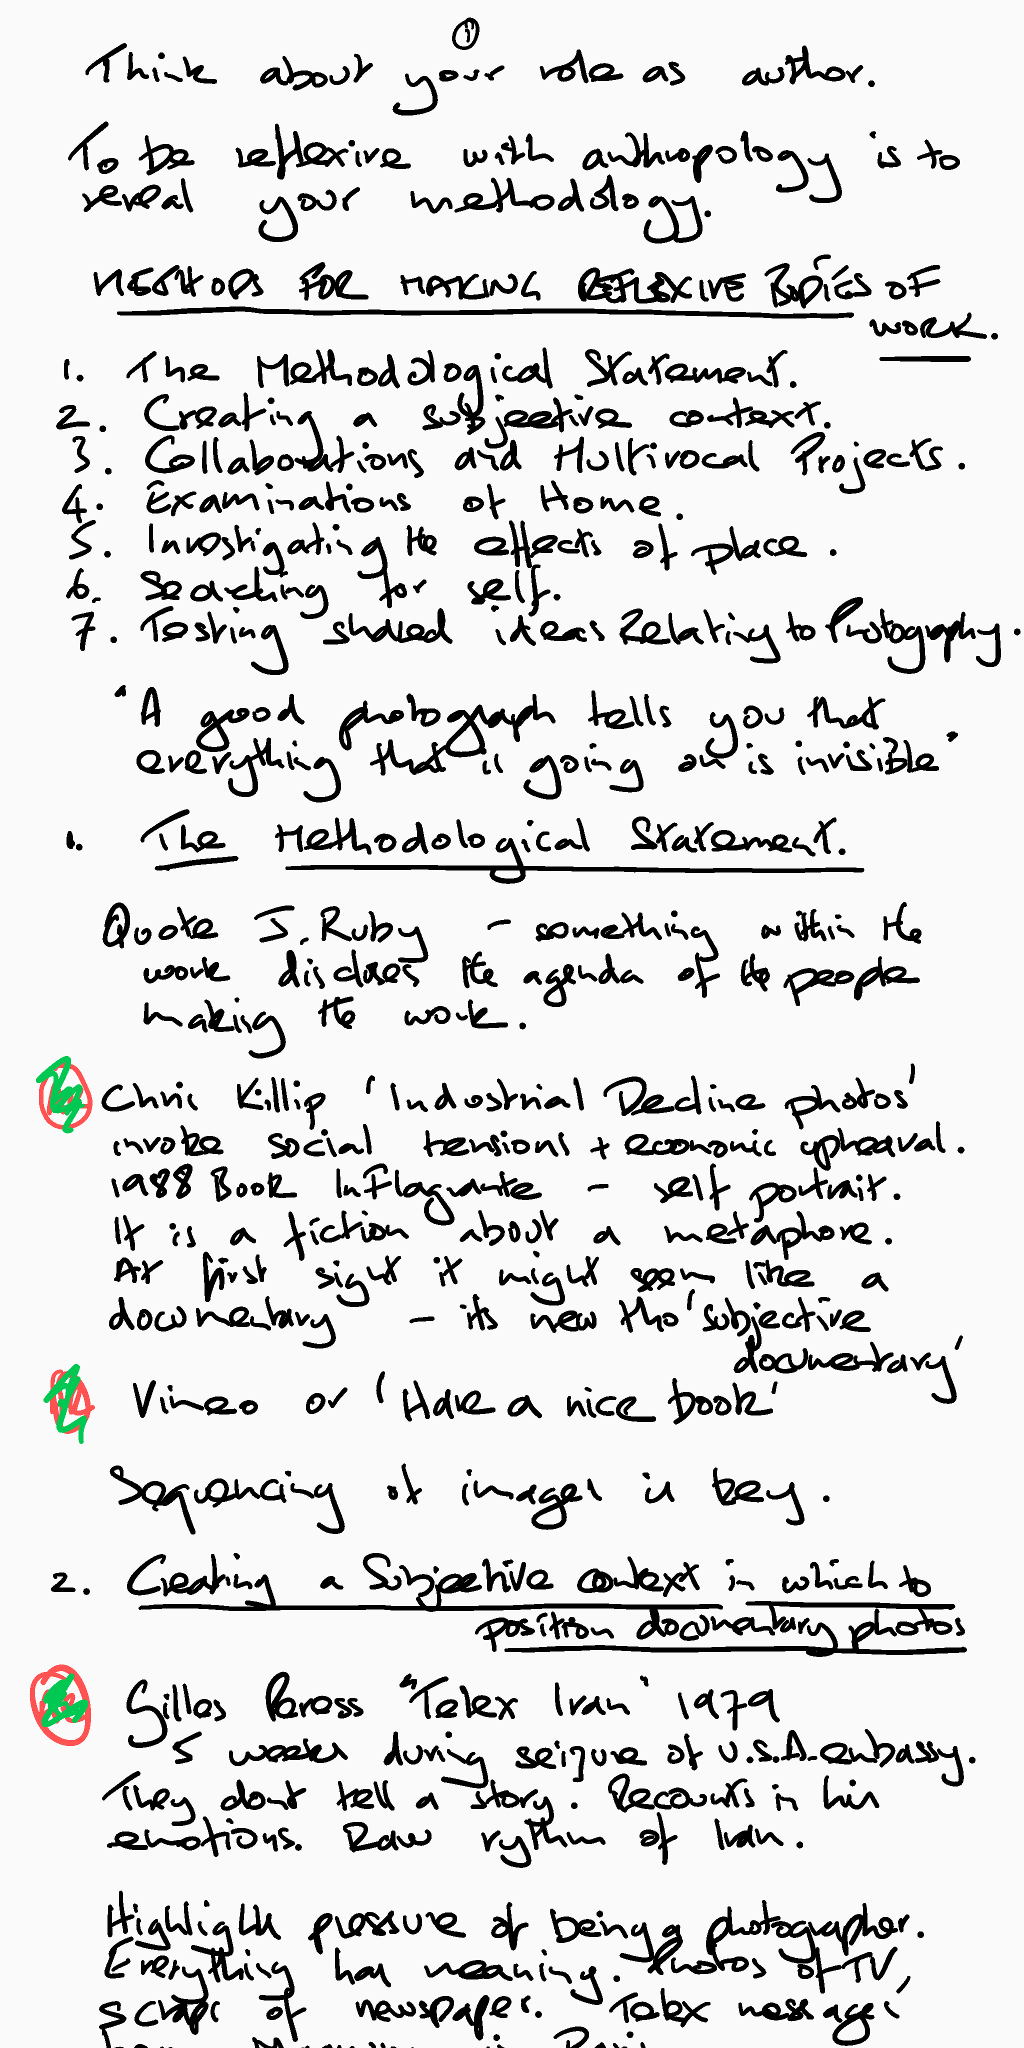 1
Think about your role as author.
To be reflexive with anthropology is to
reveal your methodology.
METHODS FOR MAKING REFLEXIVE BODIES OF
WORK.
1. The Methodological Statement.
2. Creating a subjective context.
3. Collaborations and Multivocal Projects.
4. Examinations of Home.
5. Investigating the effects of place.
6. Searching for self.
7. Testing shared ideas Relating to Photography.
"A good photograph tells you that
everything that is going on is invisible"
1. The Methodological Statement.
Quote J. Ruby - something within the
work discloses the agenda of the people
making the work.
Chris Killip 'Industrial Decline photos'
invoke social tensions + economic upheaval.
1988 Book In Flagrante - self portrait.
It is a fiction about a metaphore.
At first sight it might seem like a
documentary - its new tho 'subjective
documentary'
Vimeo or 'Have a nice book'
Sequencing of images is key.
2. Creating a Subjective context in which to
position documentary photos
Gilles Peress "Telex Iran" 1979
5 weeks during seizure of U.S.A. embassy.
They dont tell a story. Recounts in his
emotions. Raw rythm of Iran.
Highlight pressure of being a photographer.
Everything has meaning. Photos of TV,
scraps of newspaper. Telex messages